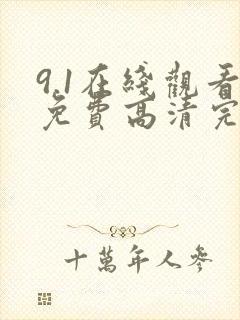 9.1在綫觀看
免費高清完
十萬年人參